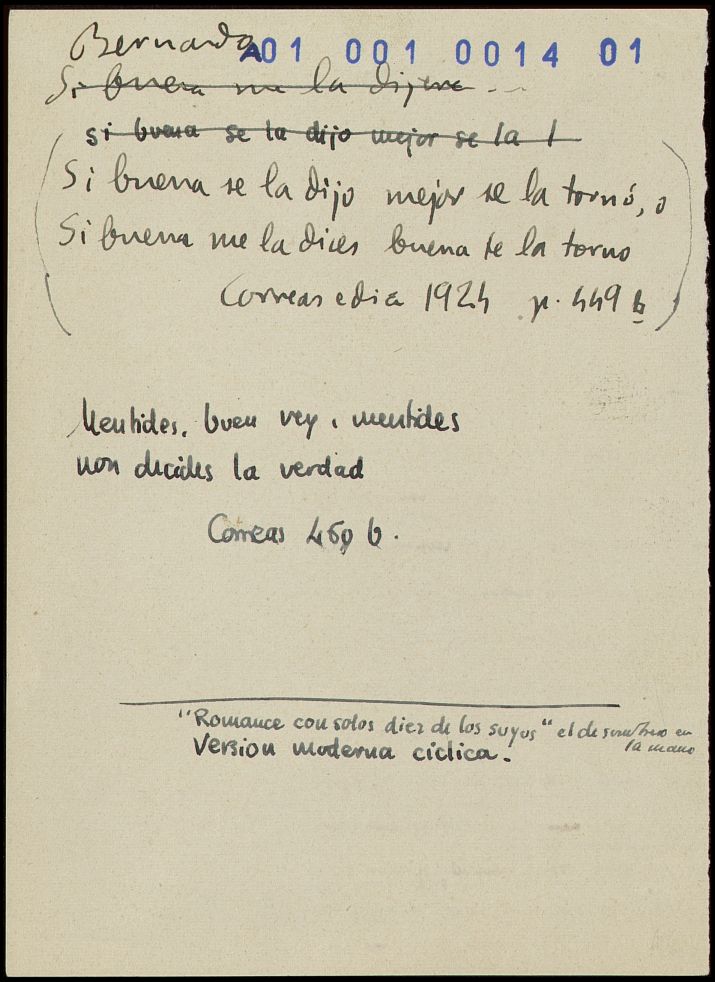 Bernardo A01 001 0014 01
Si buena me la dijera ...
si buena se la dijo mejor se la t
(Si buena se la dijo mejor se la tornó, o
Si buena me la dices buena te la torno
Correas edic 1924 p. 449 b)
Mentides, buen rey, mentides
non decides la verdad
Correas 460 b.
"Romance con solos diez de los suyos" el de sombrero en
la mano
Version moderna cíclica.